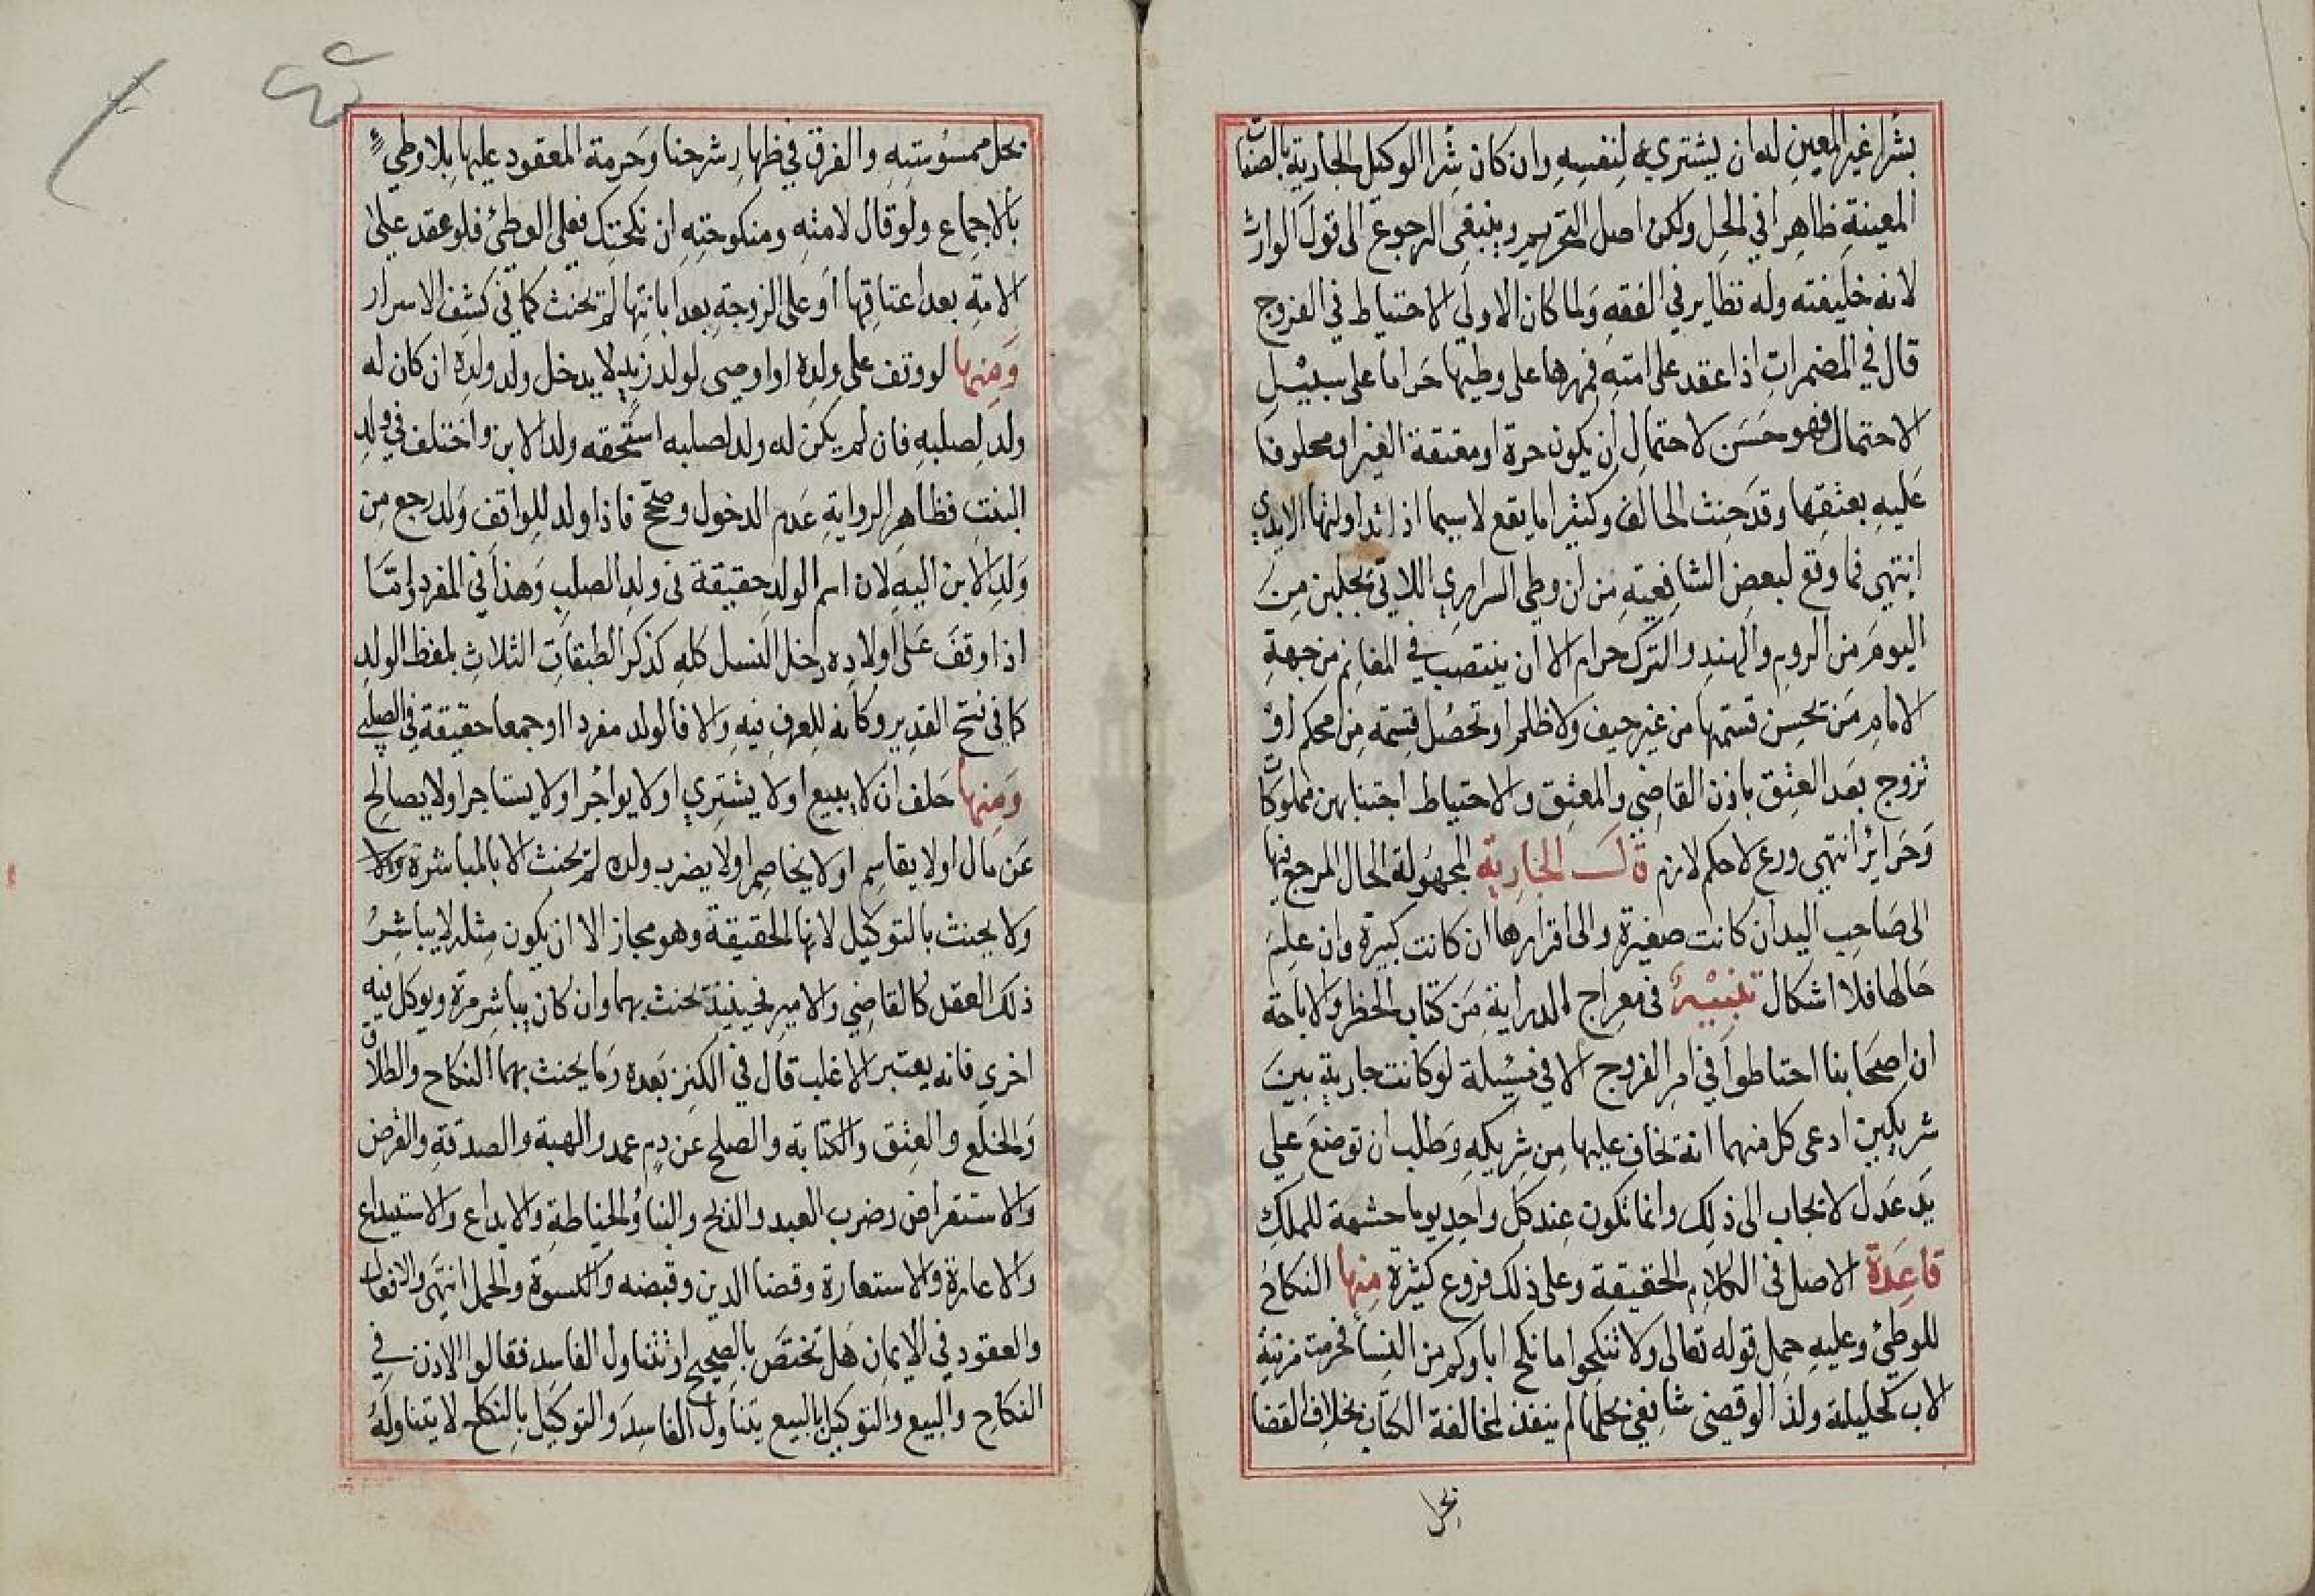 بشرا غير المعين له ان يشتريه لنفسه وان كان شرا الوكيل الجارية بالصفات
المعينة ظاهرا في الحل ولكن اصل التحريم وينبغي الرجوع الى قول الوارث
لانه خليفته وله نظاير في الفقه ولما كان الاولى الاحتياط في الفروج
قال في المضمرات اذا عقد على امته فمهرها على وطيها حراما على سبيل
الاحتمال فهو حسن لاحتمال ان يكون حرة او معتقة الغير او محلوفا
عليه بعتقها وقد حنث الحالف وكثيرا ما يقع لاسيما اذا تداولتها الايدي
انتهى فما وقع لبعض الشافعية من ان وطى السراري اللاتي يجلبن من
اليوم من الروم والهند والترك حرام الا ان ينتصب في المغانم من جهة
الامام من يحسن قسمتها من غير حيف ولا ظلم او تحصل قسمته من محكم او
تزوج بعد العتق باذن القاضي والمعتق والاحتياط اجتنابهن مملوكات
وحراير انتهى ورع لا حكم لازم فان الجارية المجهولة الحال المرجع فيها
الى صاحب اليد ان كانت صغيرة والى اقرارها ان كانت كبيرة وان علم
حالها فلا اشكال تنبيه في معراج الدراية من كتاب الحظر والاباحة
ان اصحابنا احتاطوا في امر الفروج الا في مسئلة لو كانت جارية بين
شريكين ادعى كل منهما انه يخاف عليها من شريكه وطلب ان توضع على
يد عدل لا يجاب الى ذلك وانما تكون عند كل واحد يوما حشمة للملك
قاعدة الاصل في الكلام الحقيقة وعلى ذلك فروع كثيرة منها النكاح
للوطئ وعليه حمل قوله تعالى ولا تنكحوا ما نكح اباوكم من النسا فحرمت مزنية
الاب كحليلة ولذا لو قضى شافعي بحلها لم ينفذ لمخالفة الكتاب بخلاف القضا
بحل
بحل ممسوسته والفرق في ظهار شرحنا وحرمة المعقود عليها بلا وطئ
بالاجماع ولو قال لامته ومنكوحته ان نكحتك فعلى الوطئ فلو عقد على
الامة بعد اعتاقها او على الزوجة بعد ابانتها لم يحنث كما في كشف الاسرار
ومنها لو وقف على ولده او اوصى لولد زيد لا يدخل ولد ولده ان كان له
ولد لصلبه فان لم يكن له ولد لصلبه استحقه ولد الابن واختلف في ولد
البنت فظاهر الرواية عدم الدخول وصحح فاذا ولد للواقف ولد رجع من
ولد الابن اليه لان اسم الولد حقيقة في ولد الصلب وهذا في المفرد واما
اذا وقف على اولاده دخل النسل كله كذكر الطبقات الثلاث بلفظ الولد
كما في فتح القدير وكانه للعرف فيه والا فالولد مفردا او جمعا حقيقة في الصلبي
ومنها حلف ان لا يبيع او لا يشتري او لا يواجر او لا يستاجر او لا يصالح
عن مال او لا يقاسم او لا يخاصم او لا يضرب ولده لم يحنث الا بالمباشرة
ولا يحنث بالتوكيل لانها الحقيقة وهو مجاز الا ان يكون مثله لا يباشر
ذلك العقد كالقاضي والامير فحينئذ يحنث بهما وان كان يباشر مرة ويوكل فيه
اخرى فانه يعتبر الاغلب قال في الكنز بعده وما يحنث بهما النكاح والطلاق
والخلع والعتق والكتابة والصلح عن دم عمد والهبة والصدقة والقرض
والاستقراض وضرب العبد والذبح والبناؤ والخياطة والايداع والاستيداع
والاعارة والاستعارة وقضا الدين وقبضه والكسوة والحمل انتهى والافعال
والعقود في الايمان هل تختص بالصحيح او تتناول الفاسد فقالوا الاذن في
النكاح والبيع والتوكيل بالبيع يتناول الفاسد والتوكيل بالنكاح لا يتناوله